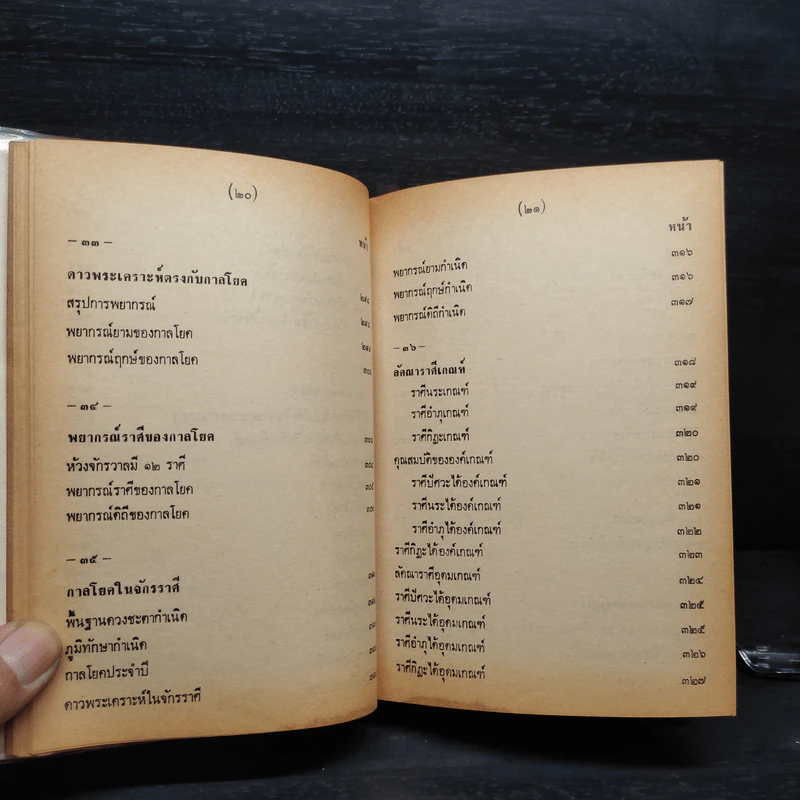 (๒๐)
– ๓๓ –
หน้า
ดาวพระเคราะห์ตรงกับกาลโยค
สรุปการพยากรณ์
พยากรณ์ยามของกาลโยค
พยากรณ์ฤกษ์ของกาลโยค
๓๐๐
– ๓๔ –
พยากรณ์ราศีของกาลโยค
ห้วงจักรวาลมี ๑๒ ราศี
พยากรณ์ราศีของกาลโยค
พยากรณ์ดิถีของกาลโยค
– ๓๕ –
กาลโยคในจักรราศี
พื้นฐานดวงชะตากำเนิด
ภูมิทักษากำเนิด
กาลโยคประจำปี
ดาวพระเคราะห์ในจักรราศี
(๒๑)
หน้า
พยากรณ์ยามกำเนิด ๓๑๖
พยากรณ์ฤกษ์กำเนิด ๓๑๖
พยากรณ์ดิถีกำเนิด ๓๑๗
– ๓๖ –
ลัคณาราศีเกณฑ์ ๓๑๘
ราศีนระเกณฑ์ ๓๑๙
ราศีอำภุเกณฑ์ ๓๑๙
ราศีกิฏะเกณฑ์ ๓๒๐
คุณสมบัติขององค์เกณฑ์ ๓๒๐
ราศีปัศวะได้องค์เกณฑ์ ๓๒๑
ราศีนระได้องค์เกณฑ์ ๓๒๑
ราศีอำภุได้องค์เกณฑ์ ๓๒๒
ราศีกิฏะได้องค์เกณฑ์ ๓๒๓
ลัคณาราศีอุดมเกณฑ์ ๓๒๔
ราศีปัศวะได้อุดมเกณฑ์ ๓๒๕
ราศีนระได้อุดมเกณฑ์ ๓๒๕
ราศีอำภุได้อุดมเกณฑ์ ๓๒๖
ราศีกิฏะได้อุดมเกณฑ์ ๓๒๗